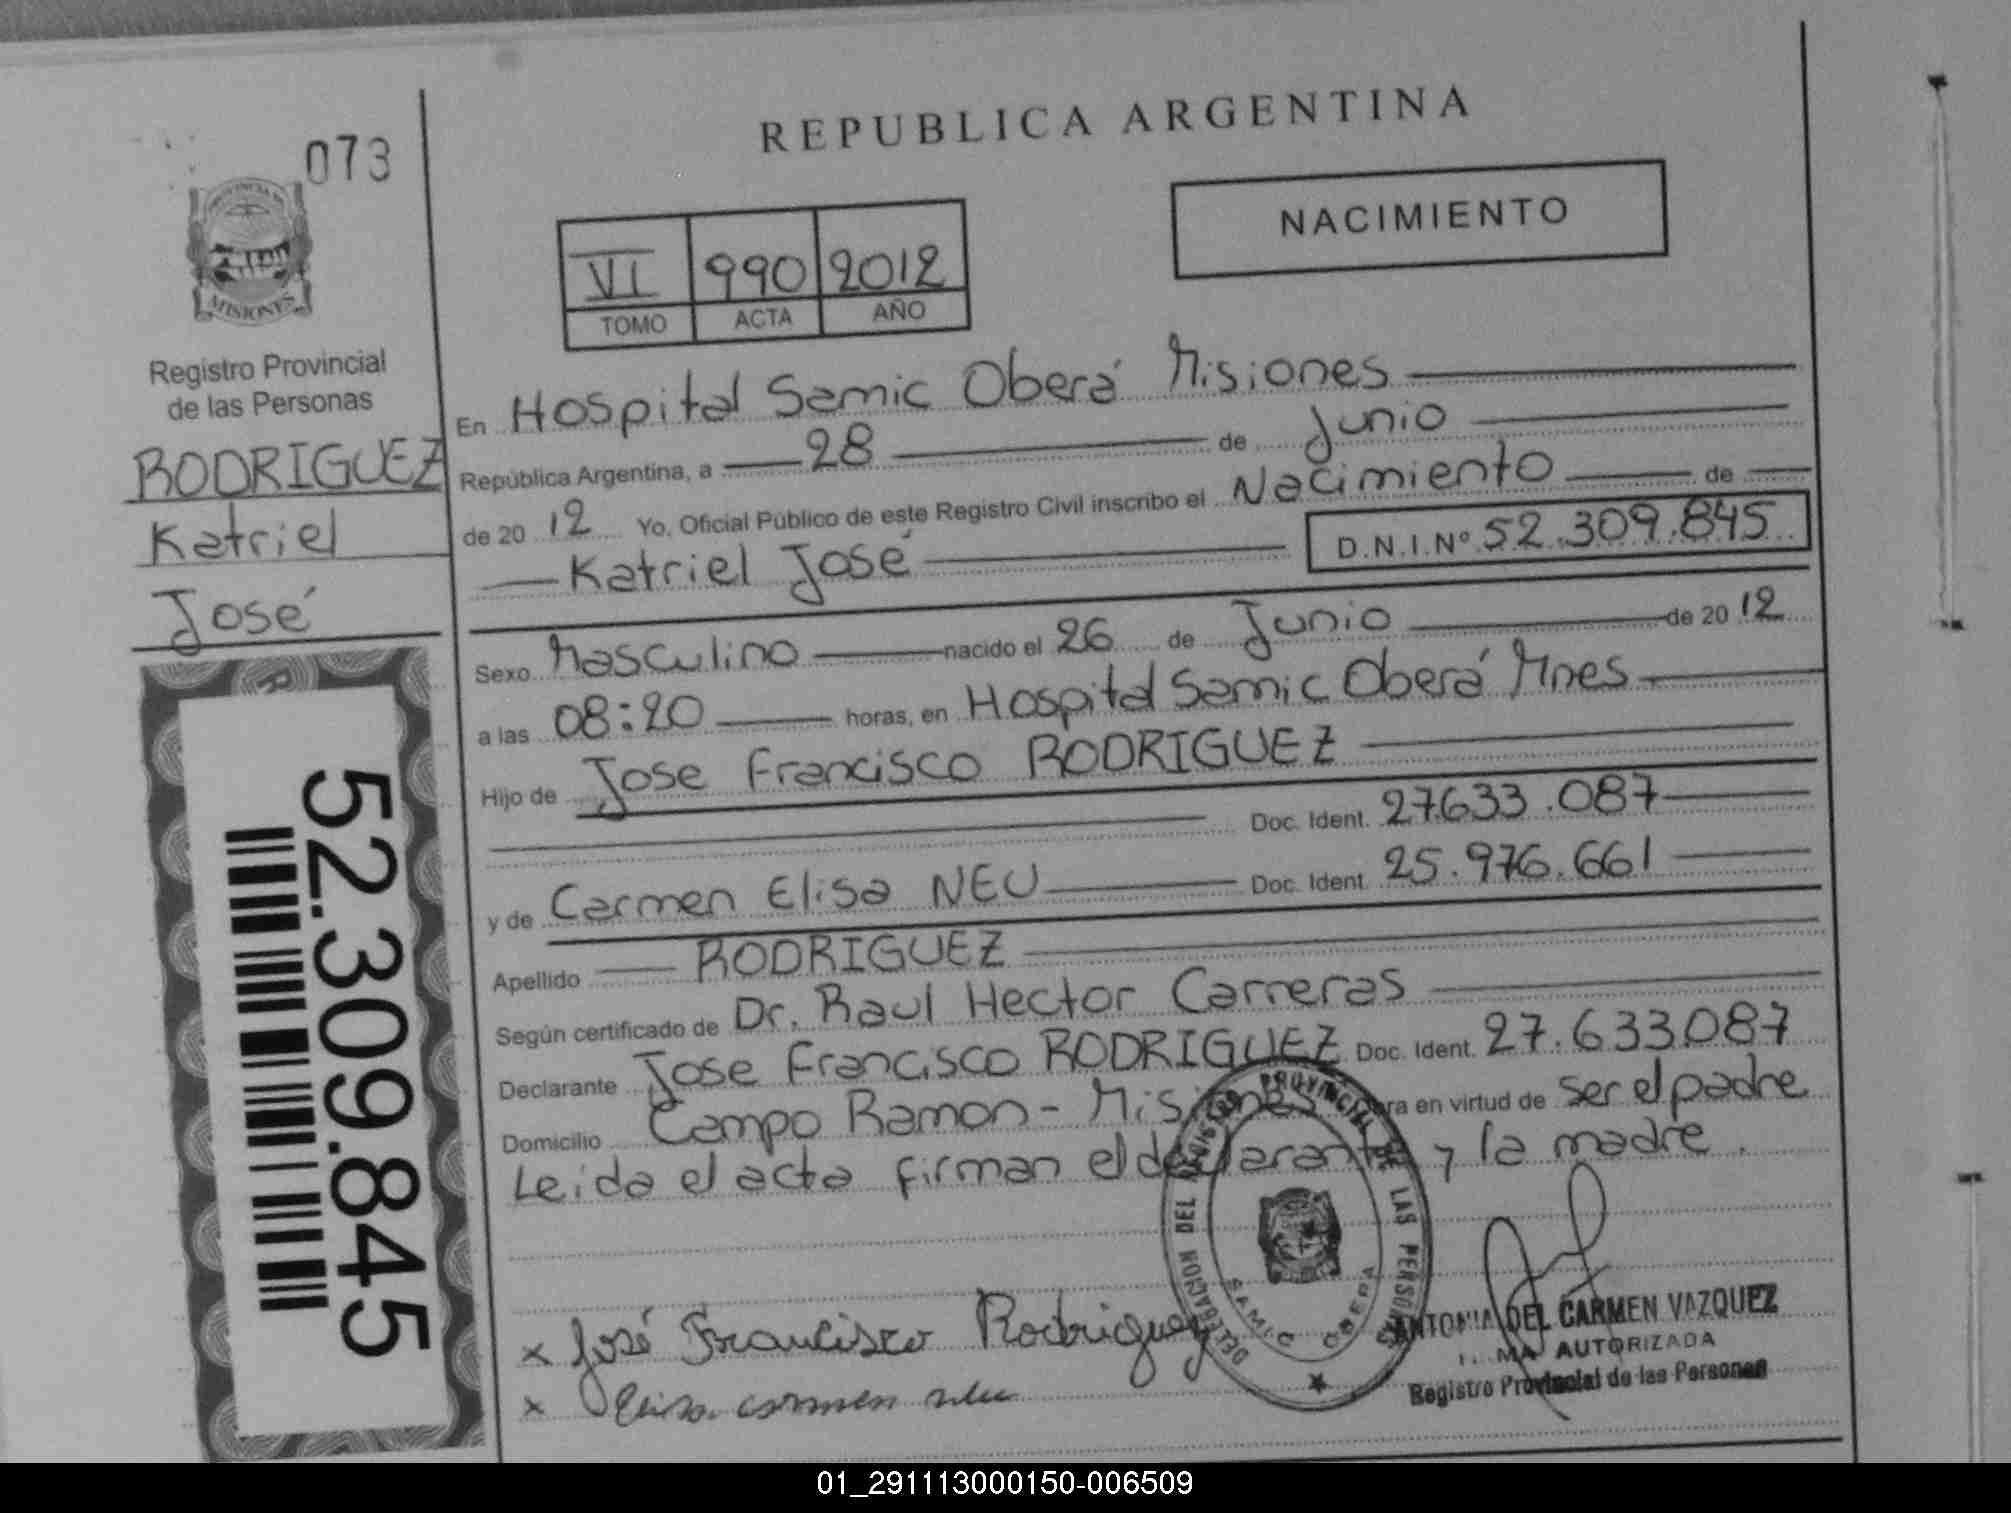 073
PROVINCIA DE
MISIONES
Registro Provincial
de las Personas
RODRIGUEZ
Katriel
José
52.309.845
REPUBLICA ARGENTINA
NACIMIENTO
VI 990 2012
TOMO ACTA AÑO
En Hospital Samic Oberá Misiones
República Argentina, a 28 de Junio
de 20 12 Yo, Oficial Público de este Registro Civil inscribo el Nacimiento de
Katriel José D.N.I.Nº 52.309.845
Sexo Masculino nacido el 26 de Junio de 20 12
a las 08:20 horas, en Hospital Samic Oberá Mnes
Hijo de Jose Francisco RODRIGUEZ
Doc. Ident. 27633.087
y de Carmen Elisa NEU Doc. Ident. 25.976.661
Apellido RODRIGUEZ
Según certificado de Dr. Raul Hector Carreras
Declarante Jose Francisco RODRIGUEZ Doc. Ident. 27.633087
Domicilio Campo Ramon - Misiones en virtud de ser el padre
Leida el acta firman el declarante y la madre.
DELEGACION DEL REGISTRO PROVINCIAL DE LAS PERSONAS
SAMIC OBERA
x José Francisco Rodriguez
x Elisa carmen neu
ANTONIA DEL CARMEN VAZQUEZ
AUTORIZADA
Registro Provincial de las Personas
01_291113000150-006509